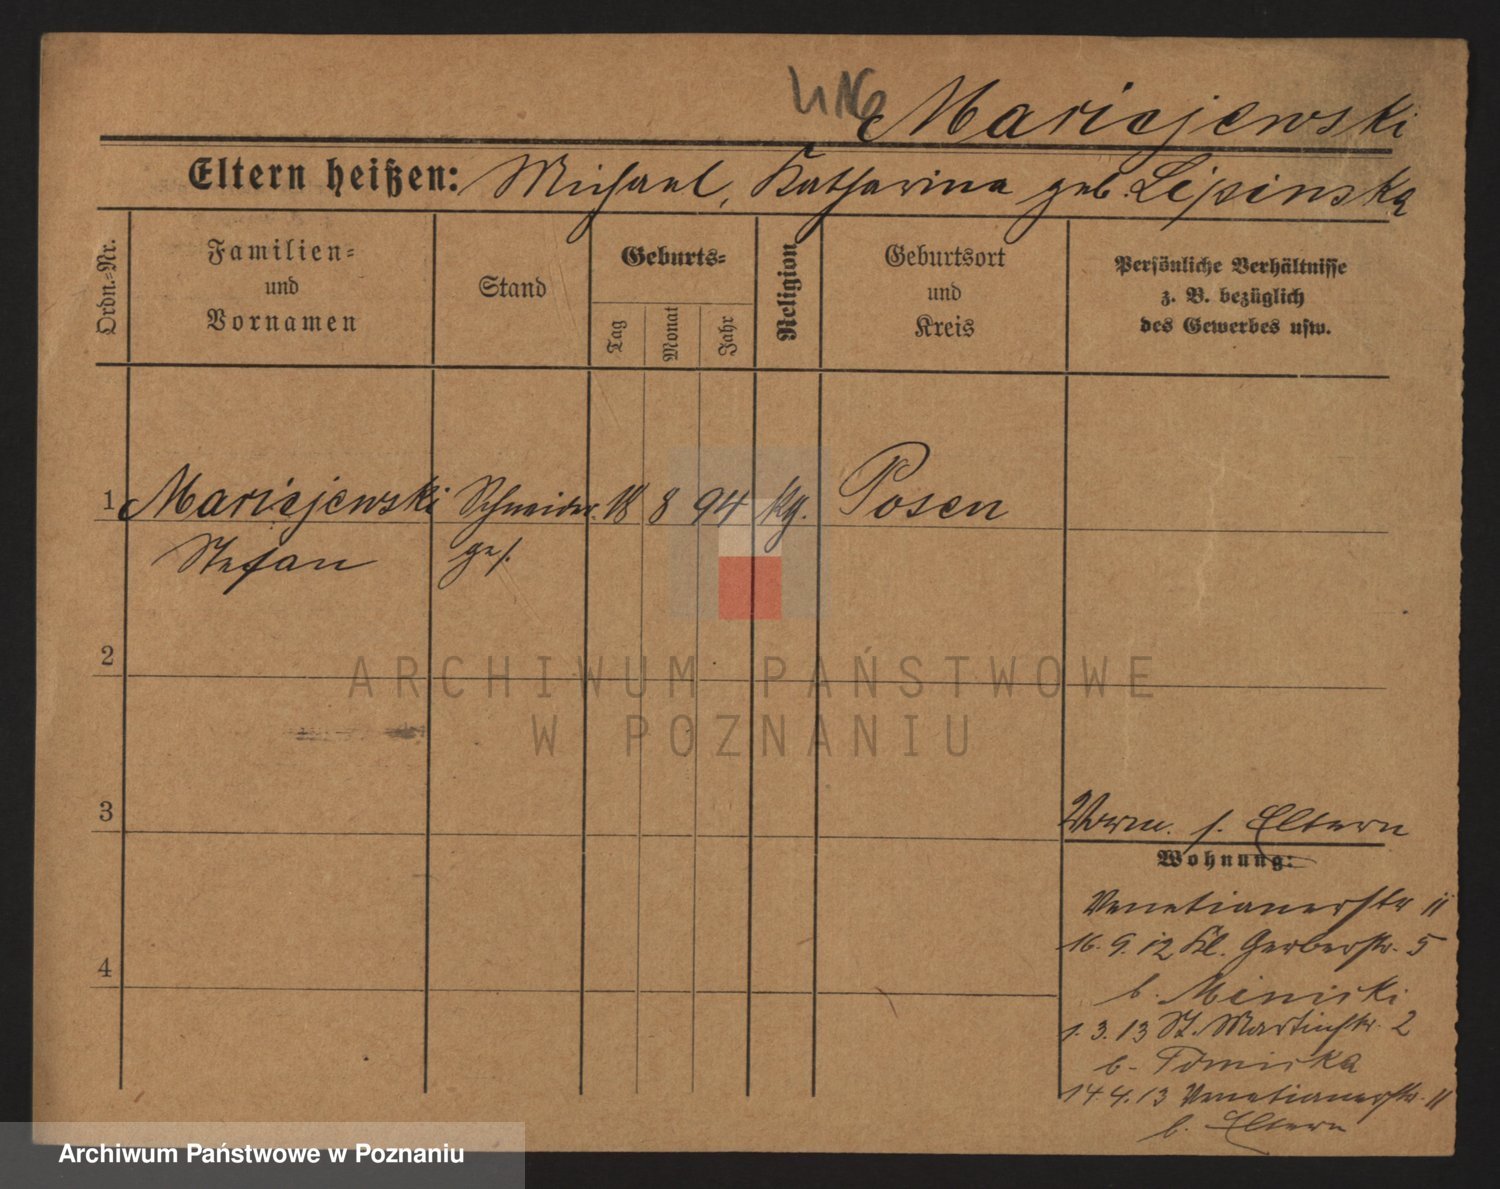 Maricjewski
Eltern heißen: Michael, Katharina geb. Lipinska
Ordn.-Nr.
Familien-
und
Vornamen
Stand
Geburts-
Tag
Monat
Jahr
Religion
Geburtsort
und
Kreis
Persönliche Verhältnisse
z. B. bezüglich
des Gewerbes usw.
1 Maricjewski Schneider 18 8 94 kg. Posen
Stefan ges.
2
3
Vorm. s. Eltern
Wohnung:
Venetianerstr 11
16. 9. 12 Kl. Gerberstr. 5
b.
4
1. 3. 13 St. Martinstr. 2
b. Tomiska
14 4. 13 Venetianerstr. 11
b. Eltern
ARCHIWUM PAŃSTWOWE
W POZNANIU
Archiwum Państwowe w Poznaniu